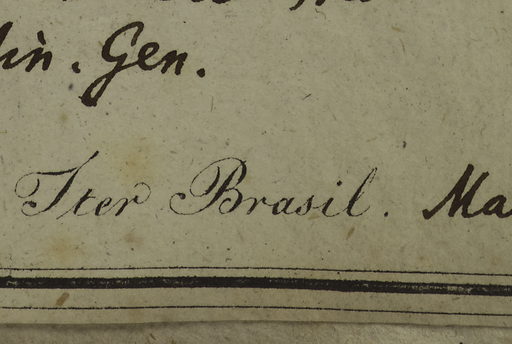 lin. Gen.
Iter Brasil. Ma